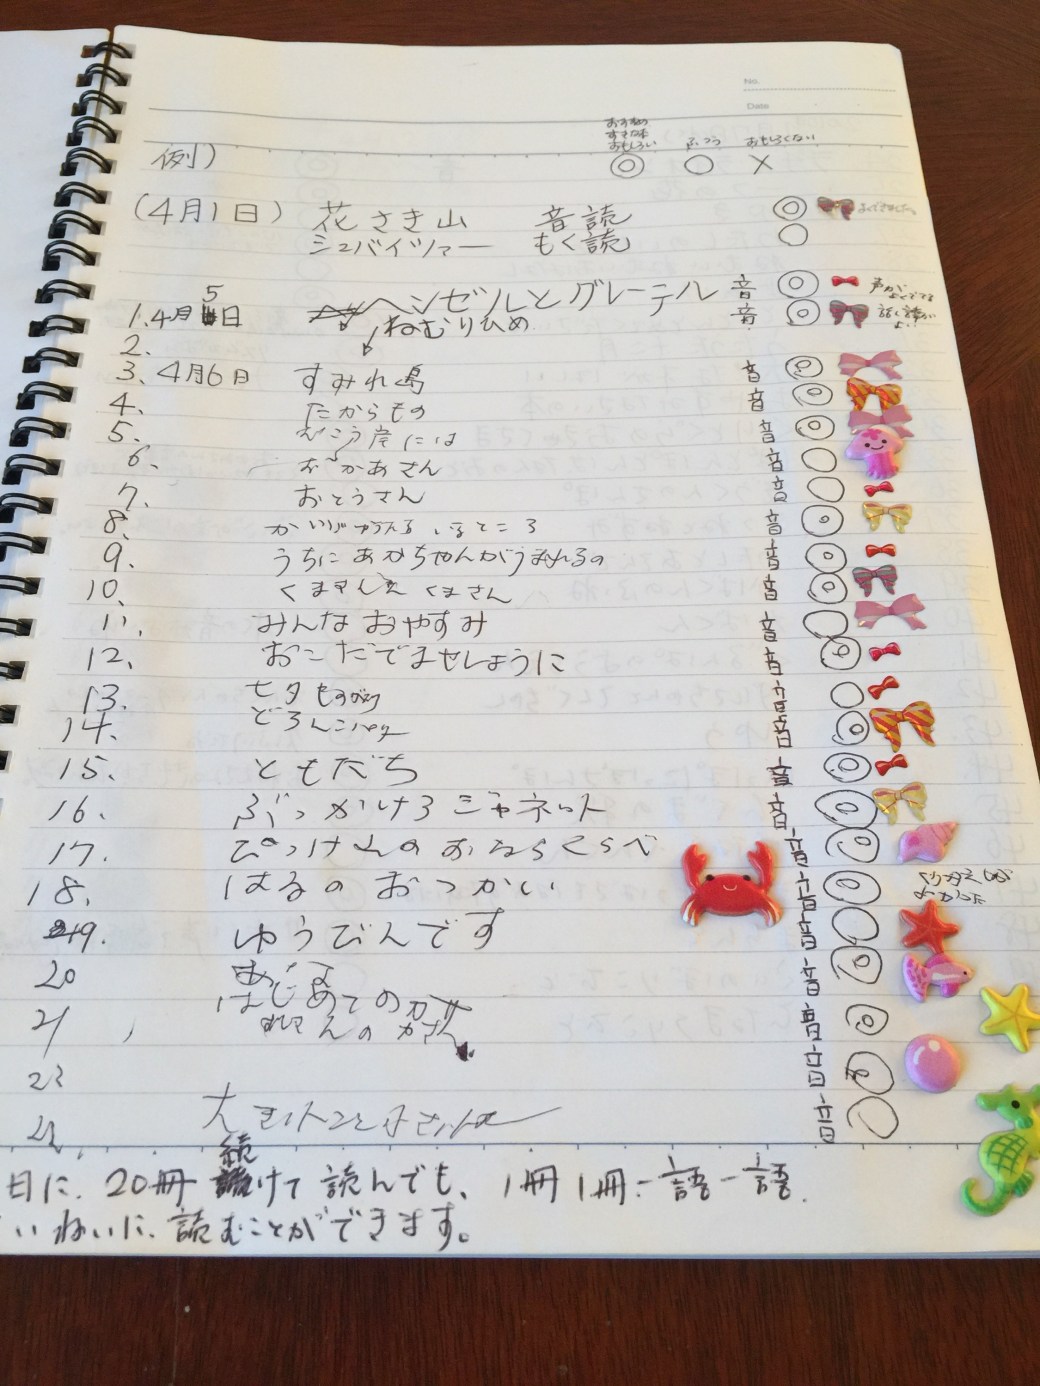 No.
Date
おすすめ
すきな本
おもしろい ふつう おもしろくない
例) ◎ ○ ×
(4月1日) 花さき山 音読 ◎ よくできました。
シュバイツァー もく読 ○
1. 4月5日 ヘンゼルとグレーテル 音 ◎ 声が
2. ねむりひめ 音 ◎
3. 4月6日 すみれ島 音 ◎
4. たからもの 音 ◎
5. むこう岸には 音 ◎
6. おかあさん 音 ○
7. おとうさん 音 ○
8. かいじゅうたちのいるところ 音 ◎
9. うちにあかちゃんがうまれるの 音 ◎
10. くまさん 音 ◎
11. みんなおやすみ 音 ○
12. おこだでませんように 音 ◎
13. 七夕ものがたり 音 ○
14. どろんこハリー 音 ◎
15. ともだち 音 ◎
16. ぶっかけろジャネット 音 ◎
17. ぴっけやんのおならくらべ 音 ◎
18. はるのおつかい 音 ◎
19. ゆうびんです 音 ○
20 はじめてのかさ 音 ◎
21 んのかさ 音 ◎
23 音
大 音 ○
日に、20冊続けて読んでも、1冊1冊、一語一語、
いねいに、読むことができます。